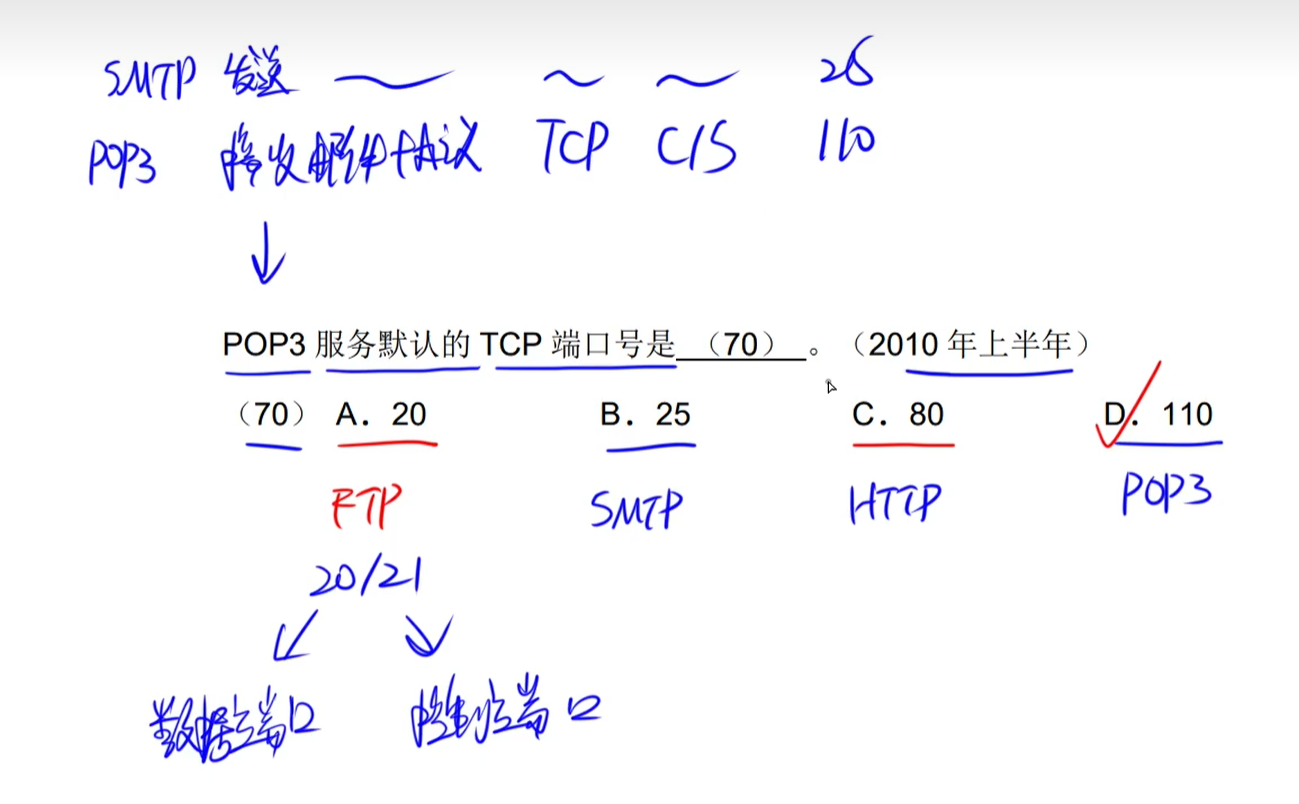 SMTP 发送 ~ ~ ~ 25
POP3 接收邮件协议 TCP C/S 110
↓
POP3 服务默认的 TCP 端口号是 （70） 。（2010 年上半年）
（70） A．20 B．25 C．80 D．110
FTP SMTP HTTP POP3
20/21
数据端口 控制端口